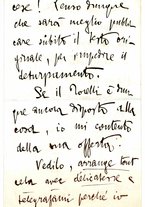 cose! Penso dunque
che sarà meglio publi
care subito il testo ori
ginale, per impedire il
deturpamento.
Se il Novelli è dun
que ancora disposto alla
cosa, io mi contento
della sua offerta.
Vedilo, arrange tout
cela avec délicatesse e
telegrafami perché io